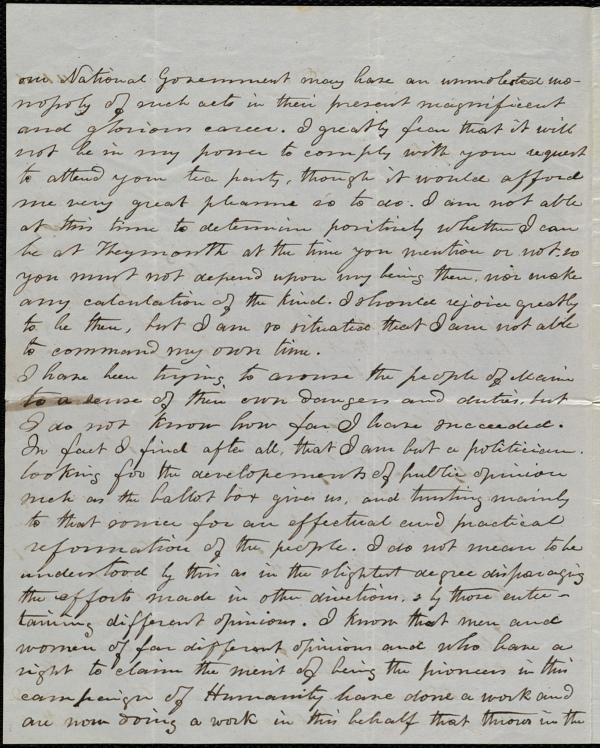 our National Government may have an unmolested mo-
nopoly of such acts in their present magnificent
and glorious career. I greatly fear that it will
not be in my power to comply with your request
to attend your tea party, though it would afford
me very great pleasure so to do. I am not able
at this time to determine positively whether I can
be at Weymouth at the time you mention or not. so
you must not depend upon my being there, nor make
any calculation of the kind. I should rejoice greatly
to be there, but I am so situated that I am not able
to command my own time.
I have been trying to arouse the people of Maine
to a sense of their own dangers and duties, but
I do not know how far I have succeeded.
In fact I find after all, that I am but a politician.
looking for the developements of public opinion
such as the ballot box gives us, and trusting mainly
to that source for an effectual and practical
reformation of the people. I do not mean to be
understood by this as in the slightest degree disparaging
the efforts made in other directions, & by those enter-
taining different opinions. I know that men and
women of far different opinions and who have a
right to claim the merit of being the pioneers in this
campaign of Humanity have done a work and
are now doing a work in this behalf that throws in the